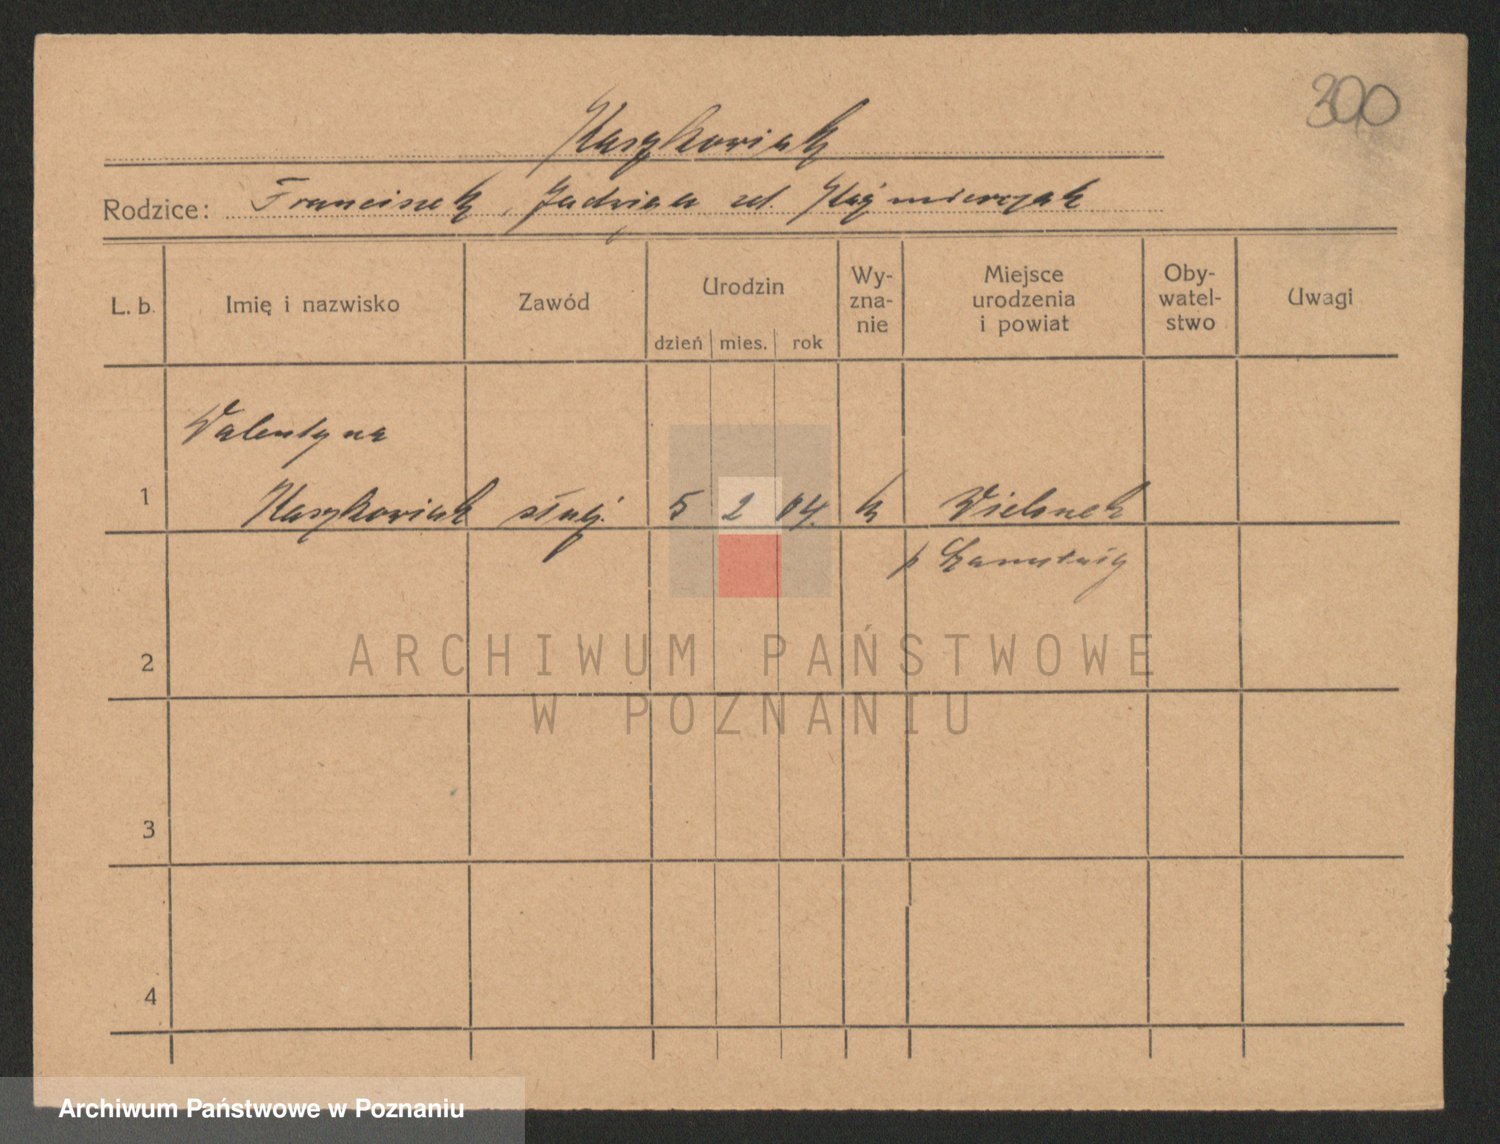 300
Kaszkowiak
Rodzice: Franciszek, Jadwiga zd. Kaźmierczak
L. b. Imię i nazwisko Zawód Urodzin dzień mies. rok Wyznanie Miejsce urodzenia i powiat Obywatelstwo Uwagi
Walentyna
1 Kaszkowiak służ. 5 2 04. k Wielonek
p
2
ARCHIWUM PAŃSTWOWE
W POZNANIU
3
4
Archiwum Państwowe w Poznaniu